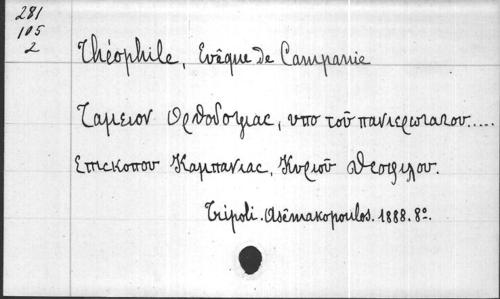 281
105
2
Théophile, Evêque de Campanie
Ταμειον Ορθοδοξιας, υπο τοῦ πανιερωτατου.....
Επισκοπου Καμπανιας, Κυριοῦ Θεοφιλου.
Tripoli. Asêmakopoulos. 1888. 8º.